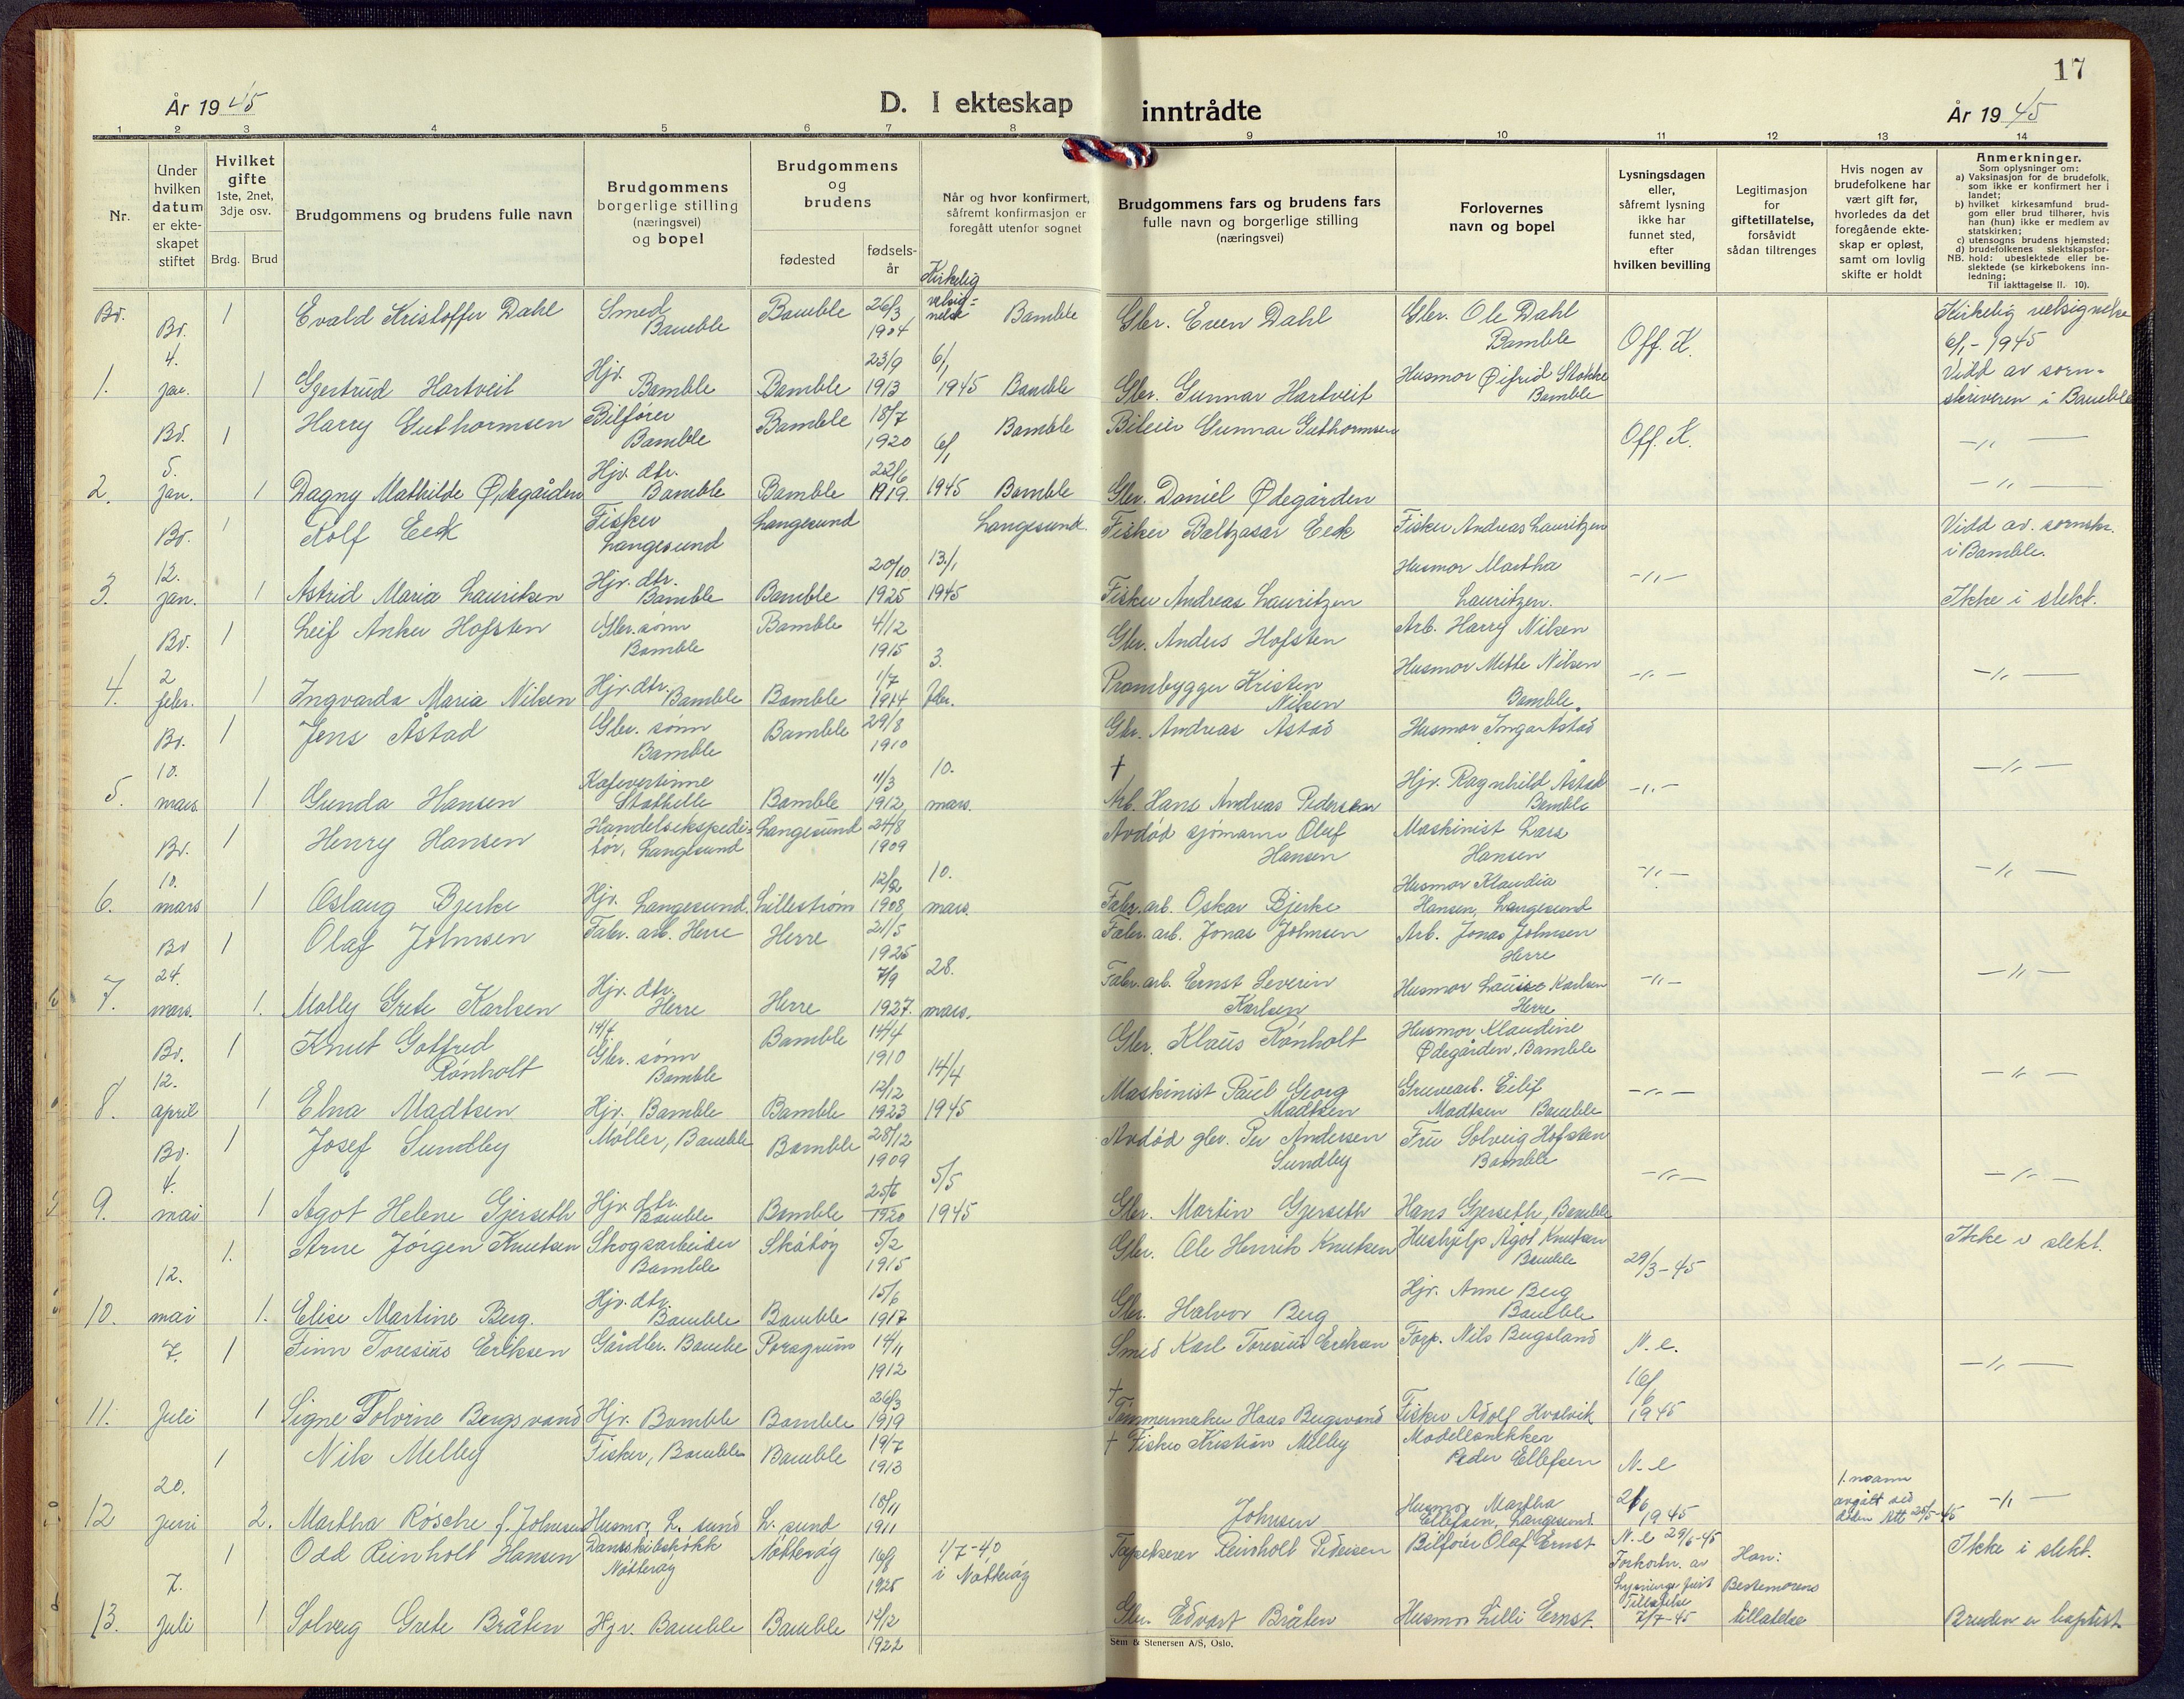 17
År 1945
D. I ekteskap inntrådte
År 1945
1 2 3 4 5 6 7 8 9 10 11 12 13 14
Nr.
Under hvilken datum er ekteskapet stiftet
Hvilket gifte
1ste, 2net, 3dje osv.
Brdg. Brud
Brudgommens og brudens fulle navn
Brudgommens borgerlige stilling (næringsvei) og bopel
Brudgommens og brudens
fødested
fødselsår
Når og hvor konfirmert, såfremt konfirmasjon er foregått utenfor sognet
Brudgommens fars og brudens fars fulle navn og borgerlige stilling (næringsvei)
Forlovernes navn og bopel
Lysningsdagen eller, såfremt lysning ikke har funnet sted, efter hvilken bevilling
Legitimasjon for giftetillatelse, forsåvidt sådan tiltrenges
Hvis nogen av brudefolkene har vært gift før, hvorledes da det foregående ekteskap er opløst, samt om lovlig skifte er holdt
Anmerkninger.
Som oplysninger om:
a) Vaksinasjon for de brudefolk, som ikke er konfirmert her i landet;
b) hvilket kirkesamfund brudgom eller brud tilhører, hvis han (hun) ikke er medlem av statskirken;
c) utensogns brudens hjemsted;
d) brudefolkenes slektskapsforhold: ubeslektede eller beslektede (se kirkebokens innledning;
NB.
Til iakttagelse II. 10).
Bv. Bv. 1 Evald Kristoffer Dahl Smed Bamble Bamble 26/3 1904 Kirkelig velsignelse Bamble Gbr. Even Dahl Gbr. Ole Dahl Bamble Off. K. Kirkelig velsignelse 6/1-1945
1. 4. jan. 1 Gjertrud Hartveit Hjv. Bamble Bamble 23/9 1913 6/1 1945 Bamble Gbr. Gunnar Hartveit Husmor Øifrid Stokke Bamble Vidd av sorenskriveren i Bamble
Bv. 1 Harry Guthormsen Bilfører Bamble Bamble 18/7 1920 Bamble Bileier Gunnar Guthormsen Off. K. -"-
2. 5. jan. 1 Dagny Mathilde Ødegården Hjv. dtr. Bamble Bamble 22/6 1919 6/1 1945 Bamble Gbr. Daniel Ødegården -"-
Bv. 1 Rolf Eeck Fisker Langesund Langesund Langesund Fisker Baltzasar Eeck Fisker Andreas Lauritzen Vidd av. sornskr. i Bamble.
3. 12. jan. 1 Astrid Maria Lauritzen Hjv. dtr. Bamble Bamble 20/10 1925 13/1 1945 Fisker Andreas Lauritzen Husmor Martha Lauritzen. -"- Ikke i slekt.
Bv. 1 Leif Anker Hofsten Gbr. sønn Bamble Bamble 4/12 1915 Gbr. Anders Hofsten Arb. Harry Nilsen
4. 2 febr. 1 Ingvarda Maria Nilsen Hjv. dtr. Bamble Bamble 1/7 1914 3. febr. Prambygger Kristen Nilsen Husmor Mette Nilsen Bamble. -"- -"-
Bv. 1 Jens Åstad Gbr. sønn Bamble Bamble 29/8 1910 Gbr. Andreas Åstad Husmor Inga Åstad
5. 10. mars. 1 Gunda Hansen Kafevertinne Stathelle Bamble 11/3 1912 10. mars. † Arb. Hans Andreas Pedersen Hjv. Ragnhild Åstad Bamble -"- -"-
Bv. 1 Henry Hansen Handelsekspeditør, Langesund Langesund 24/8 1909 Avdød sjømann Oluf Hansen Maskinist Lars Hansen
6. 10. mars 1 Oslaug Bjerke Hjv. Langesund. Lillestrøm 1908 10. mars. Fabr. arb. Oskar Bjerke Husmor Klaudia Hansen, Langesund -"- -"-
Bv 1 Olaf Johnsen Fabr. arb. Herre Herre 21/5 1925 Fabr. arb. Jonas Johnsen Arb. Jonas Johnsen Herre
7. 24. mars. 1. Molly Grete Karlsen Hjv. dtr. Herre Herre 7/9 1927. 28. mars. Fabr. arb. Ernst Severin Karlsen Husmor Karlsen Herre -"- -"-
Bv. 1 Knut Gotfred Rønholt 14/4 Gbr. sønn Bamble Bamble 14/4 1910 Gbr. Klaus Rønholt Husmor Klaudine Ødegården, Bamble
8. 12. april 1 Elna Madtsen Hjv. Bamble Bamble 12/12 1923 14/4 1945 Maskinist Paul Georg Madtsen Gruvearb. Eilif Madtsen Bamble -"- -"-
Bv. 1 Josef Sundby Møller, Bamble Bamble 28/12 1909 Avdød gbr. Per Andersen Sundby Fru Solveig Hofsten Bamble
9. 4. mai 1 Ågot Helene Gjerseth Hjv. dtr. Bamble Bamble 25/6 1920 5/5 1945 Gbr. Martin Gjerseth Hans Gjerseth, Bamble -"- -"-
1. Arne Jørgen Knutsen Skogsarbeider Bamble Skåtøy 5/2 1915 Gbr. Ole Henrik Knutsen Hushjelp Ågot Knutsen Bamble 29/3-45 Ikke i slekt.
10. 12. mai 1. Elise Martine Berg. Hjv. dtr. Bamble Bamble 15/6 1917 Gbr. Halvor Berg Hjv. Anne Berg Bamble
7. 1 Finn Toresius Eriksen Gårdbr. Bamble Porsgrunn 14/11 1912 Smed Karl Toresius Eriksen Forp. Nils Bugsland N. l. -"-
11. Juli 1 Signe Tolvine Bergsvand Hjv. Bamble Bamble 26/3 1919 † Tømmermaker Hans Bergsvand Fisker Adolf Hvalvik 16/6 1945
1 Nils Melby Fisker, Bamble Bamble 19/7 1913 † Fisker Kristian Melby Modellsnekker Peder Ellefsen N. l
12 20. juni 2. Martha Røsche f. Johnsen Husmor, L. sund L. sund 18/11 1911 Johnsen Husmor Martha Ellefsen, Langesund. 1945 1. mann avgått ved døden 25/5-45 -"-
1 Odd Reinholt Hansen Nøtterøy Nøtterøy 16/8 1925 1/7-40 i Nøtterøy Tapetserer Reinholt Pedersen Bilfører Olaf Ernst N. l 29/6-45 Han: Ikke i slekt.
13. 7. Juli 1 Solveig Grete Bråten Hjv. Bamble Bamble 12/12 1922 Gbr. Edvart Bråten Husmor Lilli Ernst. Tillatelse 7/7-45 Bestemorens tillatelse Bruden er baptist
Sem & Stenersen A/S, Oslo.